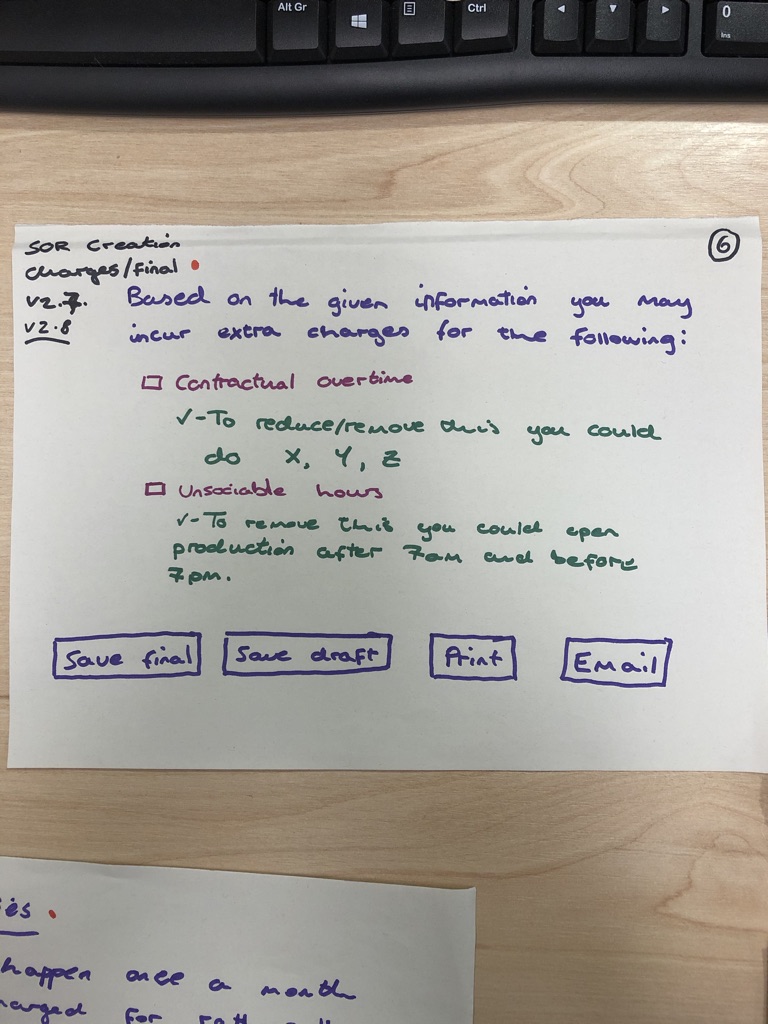 Alt Gr
Ctrl
0
Ins
SOR Creation
charges/final
v2.7.
v2.8
6
Based on the given information you may
incur extra charges for the following:
Contractual overtime
✓-To reduce/remove this you could
do X, Y, Z
Unsociable hours
✓-To remove this you could open
production after 7am and before
7pm.
Save final
Save draft
Print
Email
happen once a month
for